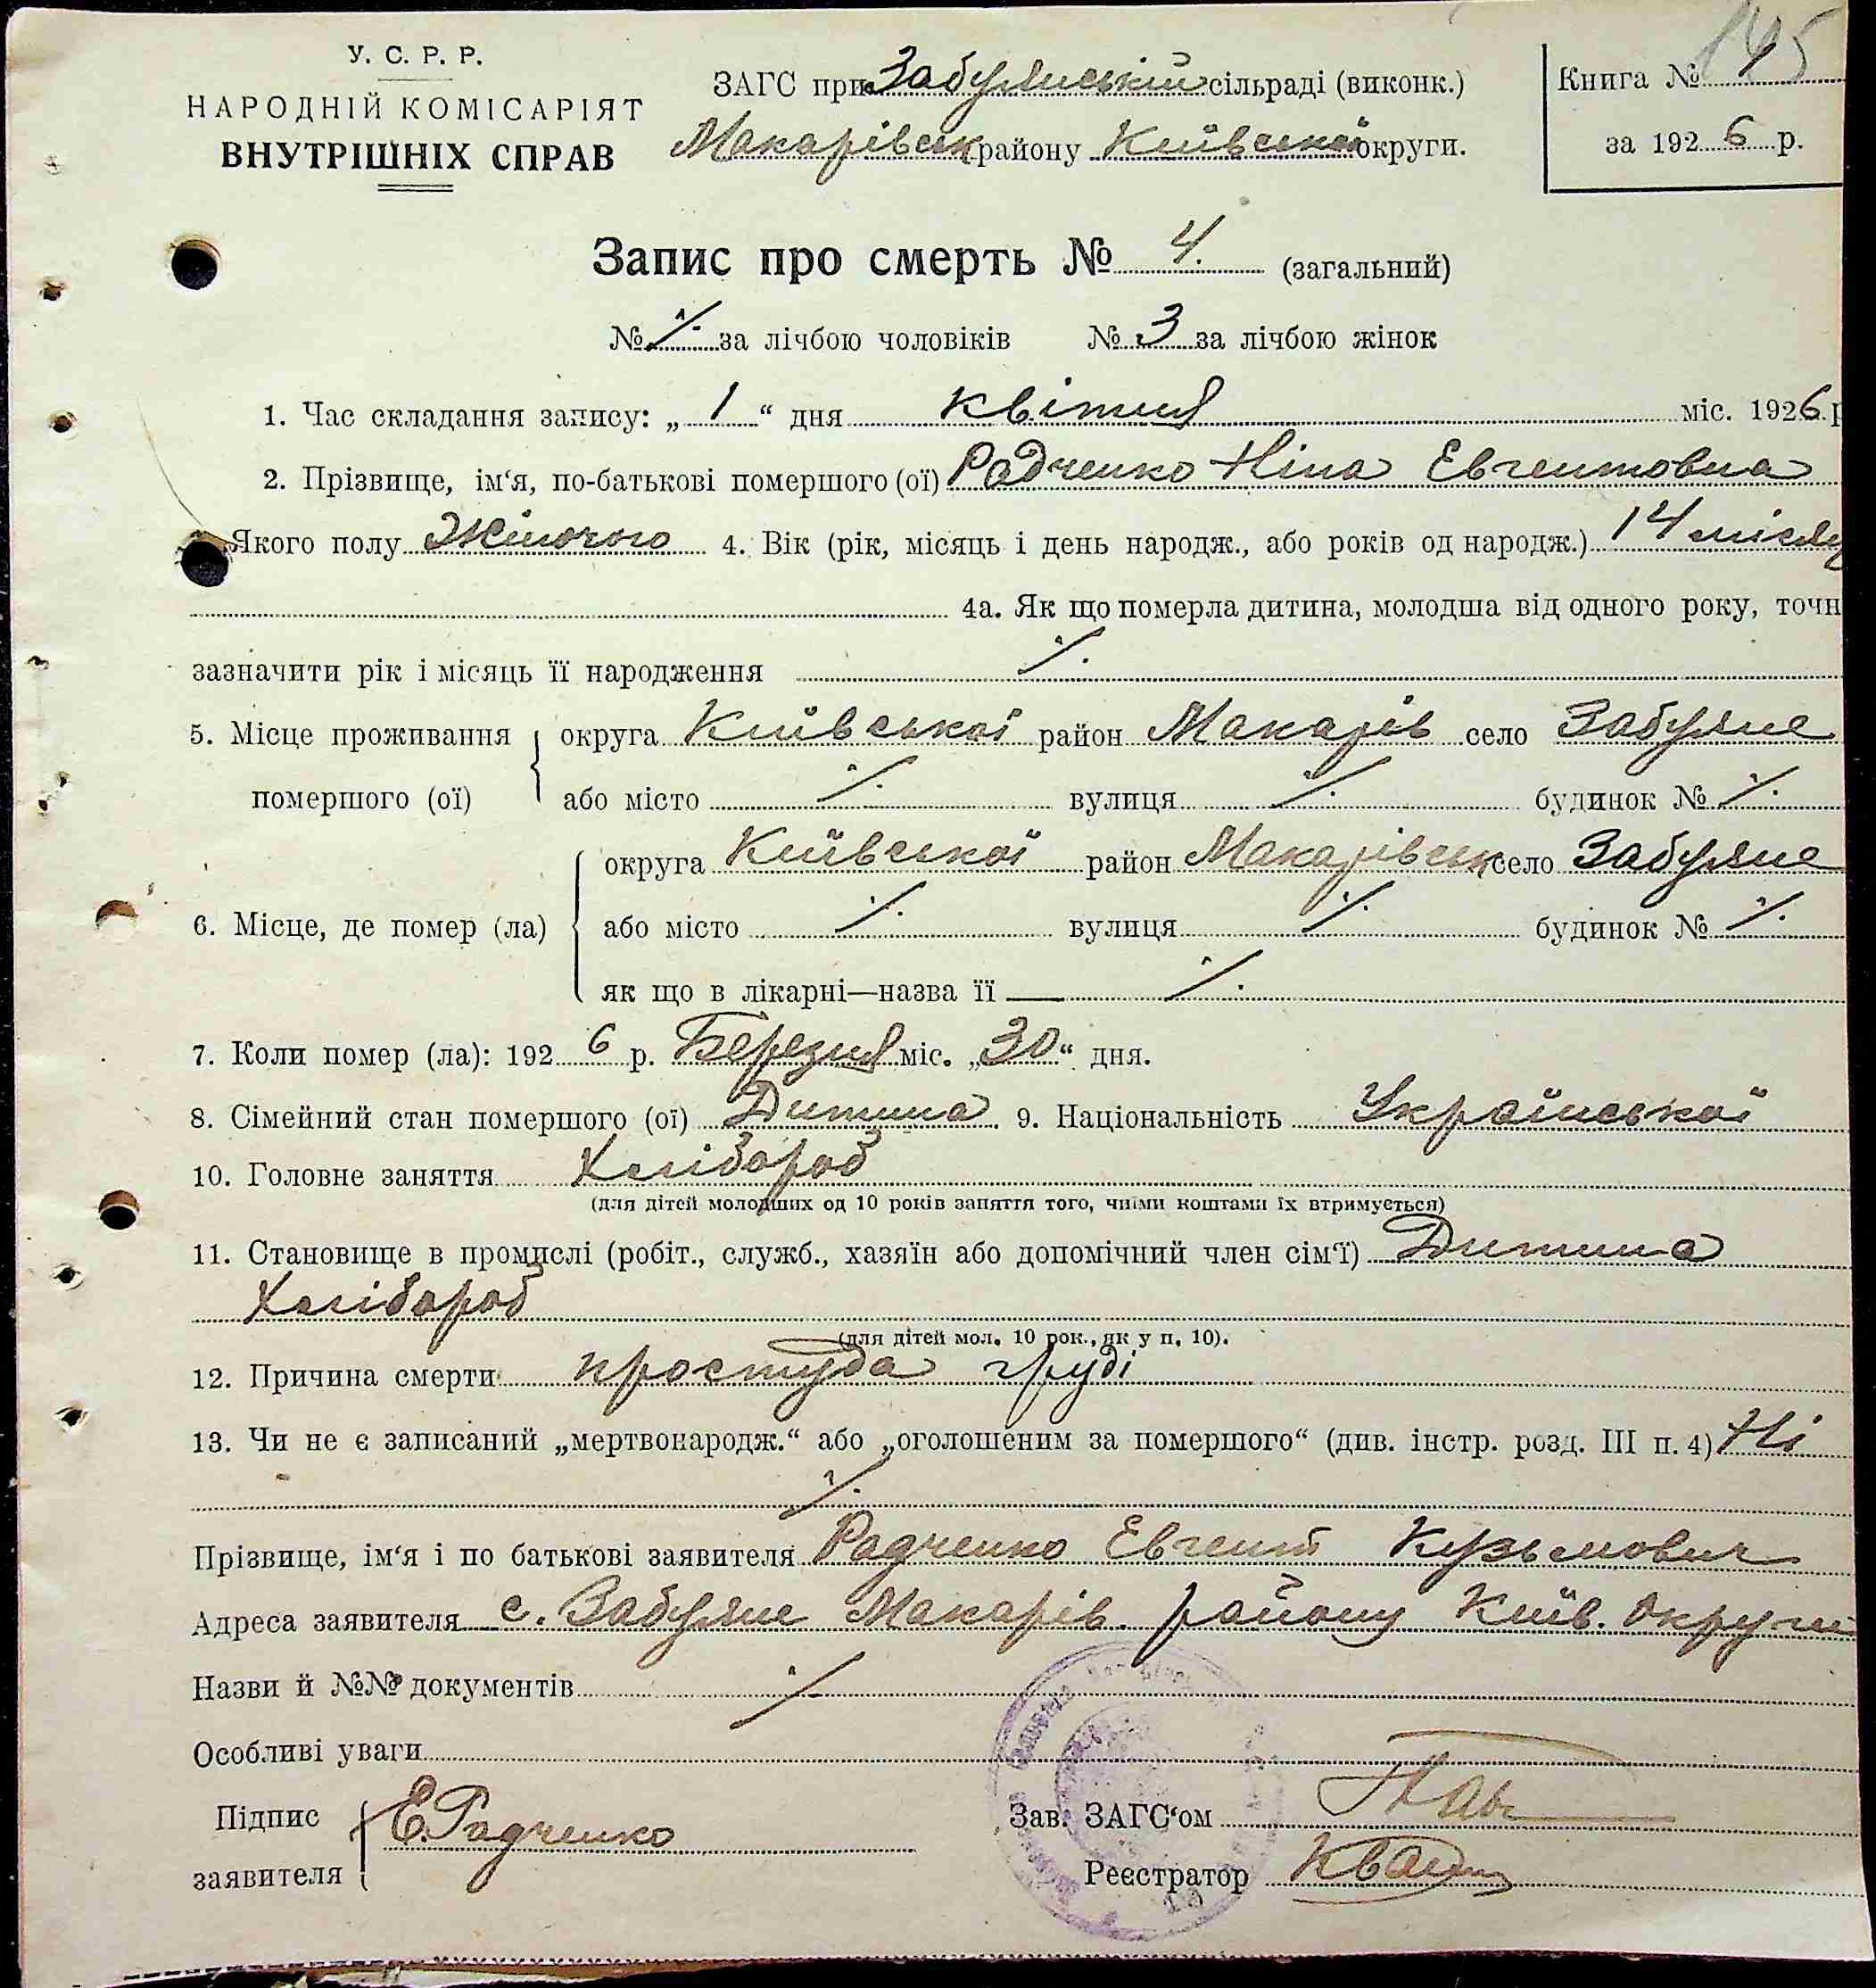 У. С. Р. Р.
НАРОДНІЙ КОМІСАРІЯТ
ВНУТРІШНІХ СПРАВ
ЗАГС при Забуянській сільраді (виконк.)
Макарівськ району Київської округи.
Книга №
за 1926 р.
145
Запис про смерть № 4. (загальний)
№ ·/· за лічбою чоловіків № 3 за лічбою жінок
1. Час складання запису: „1“ дня квітня міс. 1926. р
2. Прізвище, ім‘я, по-батькові помершого (ої) Радченко Ніна Евгентовна
Якого полу Жіночого 4. Вік (рік, місяць і день народж., або років од народж.) 14 місяц
4а. Як що померла дитина, молодша від одного року, точн
зазначити рік і місяць її народження ·/·
5. Місце проживання помершого (ої) округа Київської район Макарів село Забуяне
або місто ·/· вулиця ·/· будинок № ·/·
6. Місце, де помер (ла) округа Київської район Макарівськ село Забуяне
або місто ·/· вулиця ·/· будинок № ·/·
як що в лікарні—назва її ·/·
7. Коли помер (ла): 1926 р. Березня міс. „30“ дня.
8. Сімейний стан помершого (ої) Дитина. 9. Національність Української
10. Головне заняття Хлібороб
(для дітей молодших од 10 років заняття того, чиїми коштами їх втримується)
11. Становище в промислі (робіт., служб., хазяїн або допомічний член сім‘ї) Дитина
Хлібороб
(для дітей мол. 10 рок., як у п. 10).
12. Причина смерти простуда груді
13. Чи не є записаний „мертвонародж.“ або „оголошеним за помершого“ (див. інстр. розд. III п. 4) Ні
·/·
Прізвище, ім‘я і по батькові заявителя Радченко Евгент Кузьмович
Адреса заявителя с. Забуяне Макарів. району Київ. Округи
Назви й №№ документів ·/·
Особливі уваги
Підпис заявителя Е. Радченко
Зав. ЗАГС‘ом
Реєстратор